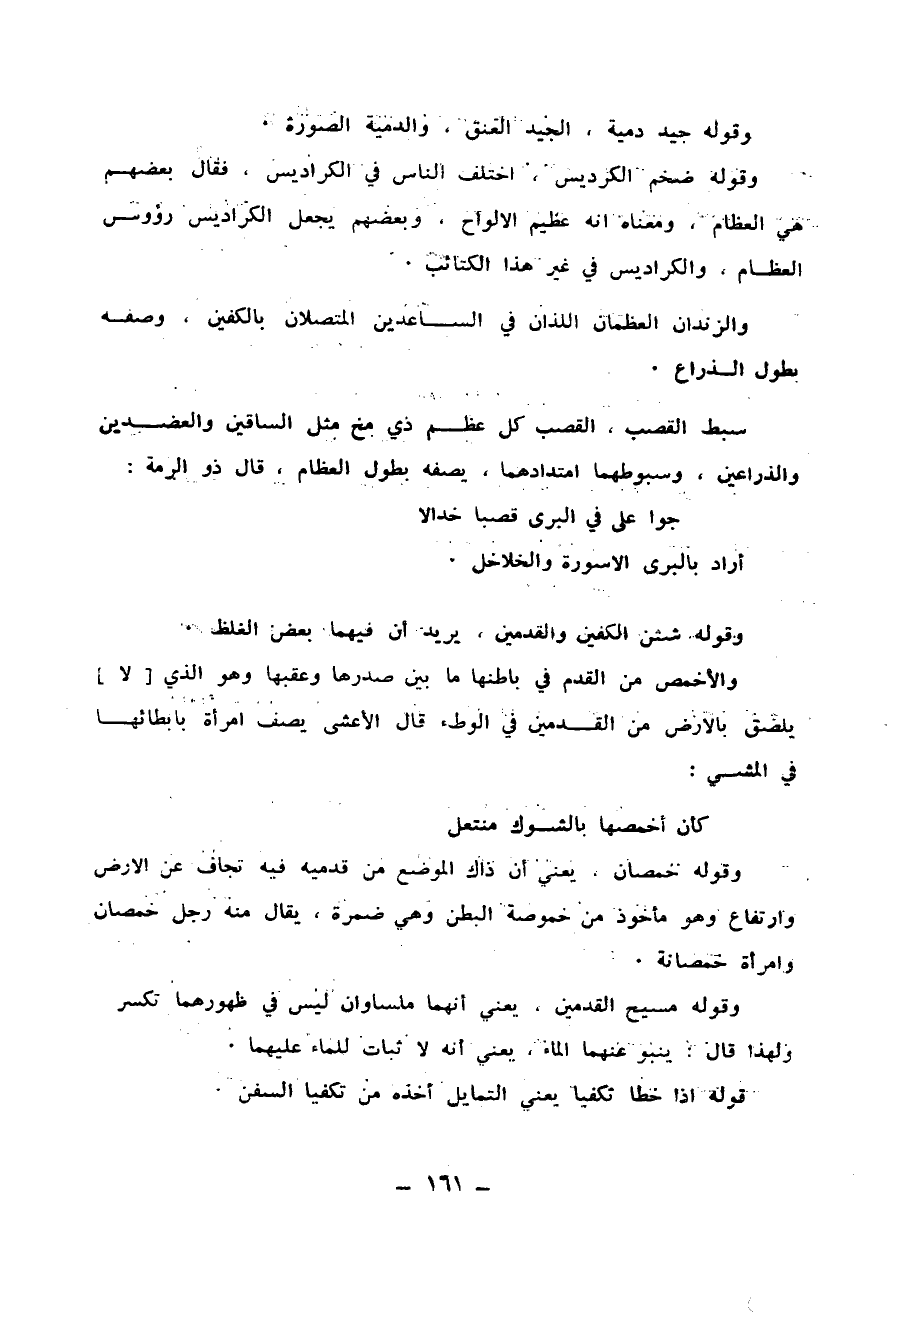 وقوله جيد دمية ، الجيد العنق ، والدمية الصورة ٠
وقوله ضخم الكرديس ، اختلف الناس في الكراديس ، فقال بعضهم
هي العظام ، ومعناه انه عظيم الالواح ، وبعضهم يجعل الكراديس رؤوس
العظام ، والكراديس في غير هذا الكتائب ٠
والزندان العظمان اللذان في الساعدين المتصلان بالكفين ، وصفه
بطول الذراع ٠
سبط القصب ، القصب كل عظم ذي مخ مثل الساقين والعضدين
والذراعين ، وسبوطهما امتدادهما ، يصفه بطول العظام ، قال ذو الرمة :
جوا على في البرى قصبا خدالا
أراد بالبرى الاسورة والخلاخل ٠
وقوله شثن الكفين والقدمين ، يريد أن فيهما بعض الغلظ ٠
والأخمص من القدم في باطنها ما بين صدرها وعقبها وهو الذي [ لا ]
يلصق بالأرض من القدمين في الوطء قال الأعشى يصف امرأة بابطائها
في المشي :
كأن أخمصها بالشوك منتعل
وقوله خمصان ، يعني أن ذاك الموضع من قدميه فيه تجاف عن الارض
وارتفاع وهو مأخوذ من خموصة البطن وهي ضمرة ، يقال منه رجل خمصان
وامرأة خمصانة ٠
وقوله مسيح القدمين ، يعني أنهما ملساوان ليس في ظهورهما تكسر
ولهذا قال : ينبو عنهما الماء ، يعني أنه لا ثبات للماء عليهما ٠
قوله اذا خطا تكفيا يعني التمايل أخذه من تكفيا السفن ٠
– ١٦١ –